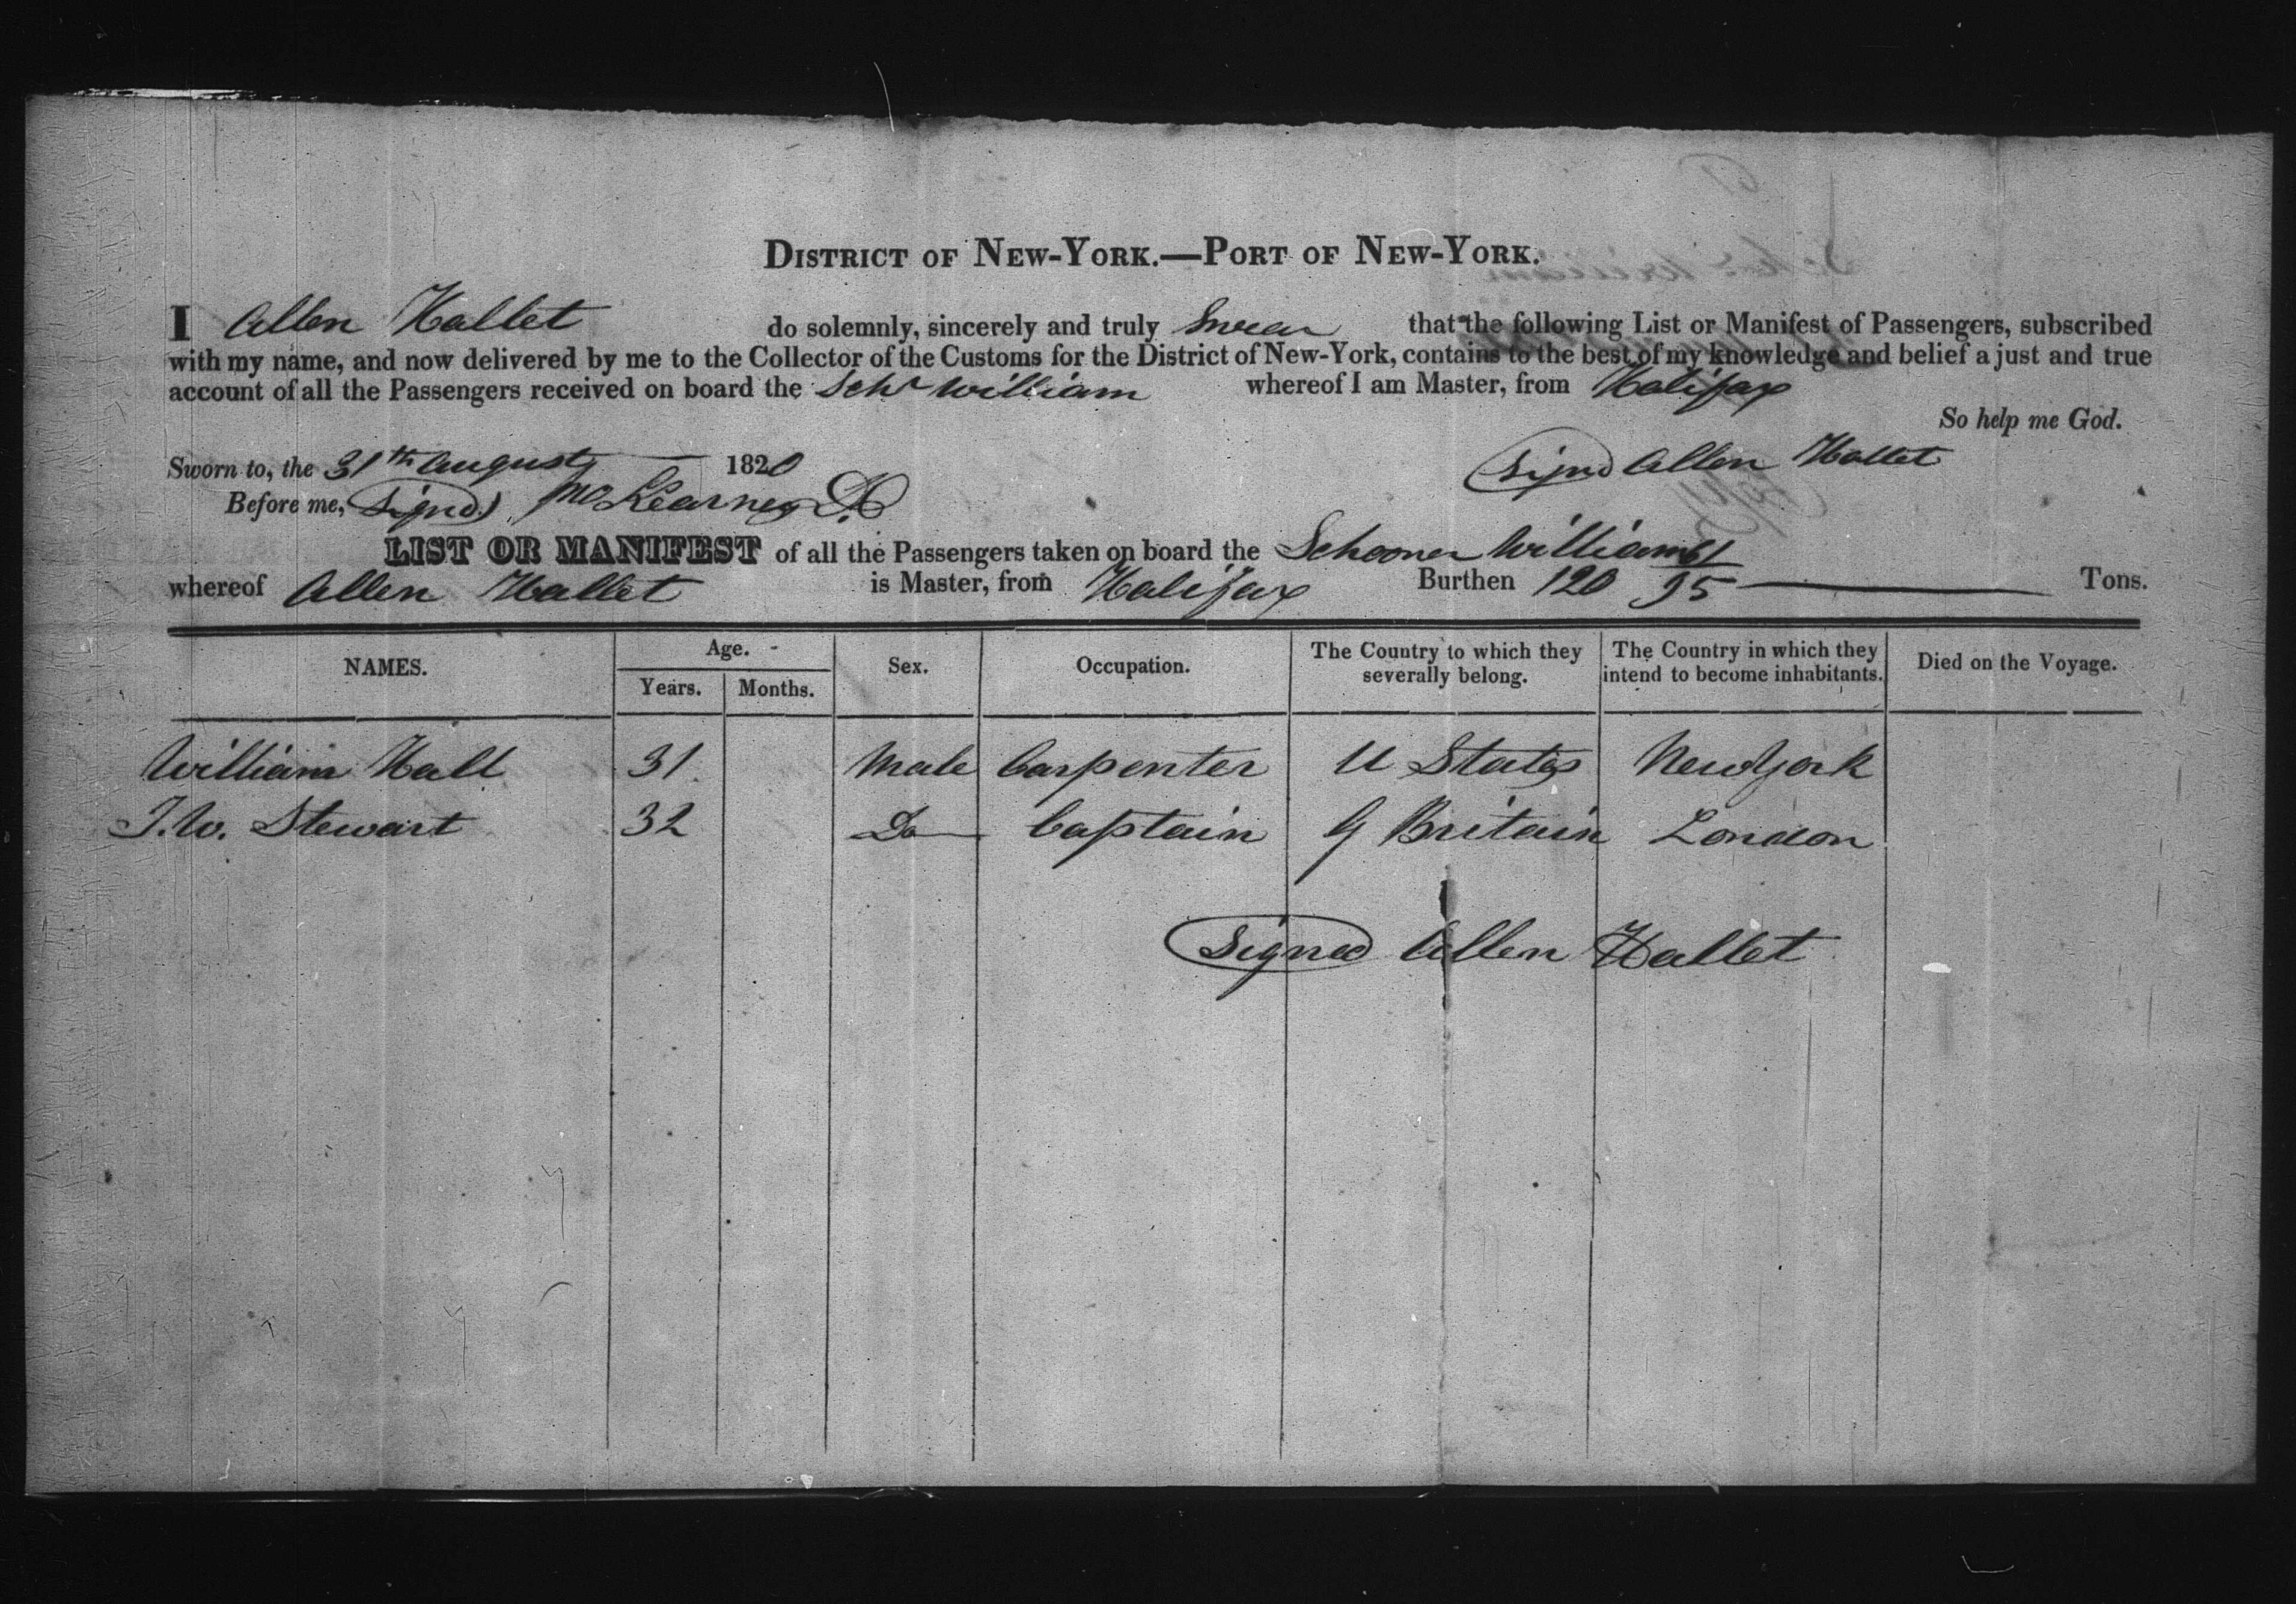 DISTRICT OF NEW-YORK.—PORT OF NEW-YORK.
I Allen Hallet do solemnly, sincerely and truly Swear that the following List or Manifest of Passengers, subscribed
with my name, and now delivered by me to the Collector of the Customs for the District of New-York, contains to the best of my knowledge and belief a just and true
account of all the Passengers received on board the Schr William whereof I am Master, from Halifax
So help me God.
Sworn to, the 31th August 1820 (Signd Allen Hallet
Before me, (Signd)
LIST OR MANIFEST of all the Passengers taken on board the Schooner William
whereof Allen Hallet is Master, from Halifax Burthen 120 61/95 Tons.
NAMES. Age. Years. Months. Sex. Occupation. The Country to which they severally belong. The Country in which they intend to become inhabitants. Died on the Voyage.
William Hall 31 Male Carpenter U States New York
J.W. Stewart 32 Do Captain G Britain London
(Signed) Allen Hallet